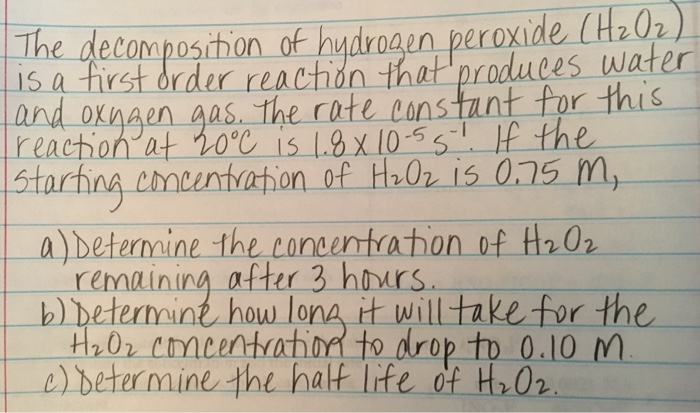 The decomposition of hydrogen peroxide (H₂O₂)
is a first order reaction that produces water
and oxygen gas. The rate constant for this
reaction at 20°C is 1.8 x 10⁻⁵ s⁻¹. If the
starting concentration of H₂O₂ is 0.75 M,
a) Determine the concentration of H₂O₂
remaining after 3 hours.
b) Determine how long it will take for the
H₂O₂ concentration to drop to 0.10 M.
c) Determine the half life of H₂O₂.